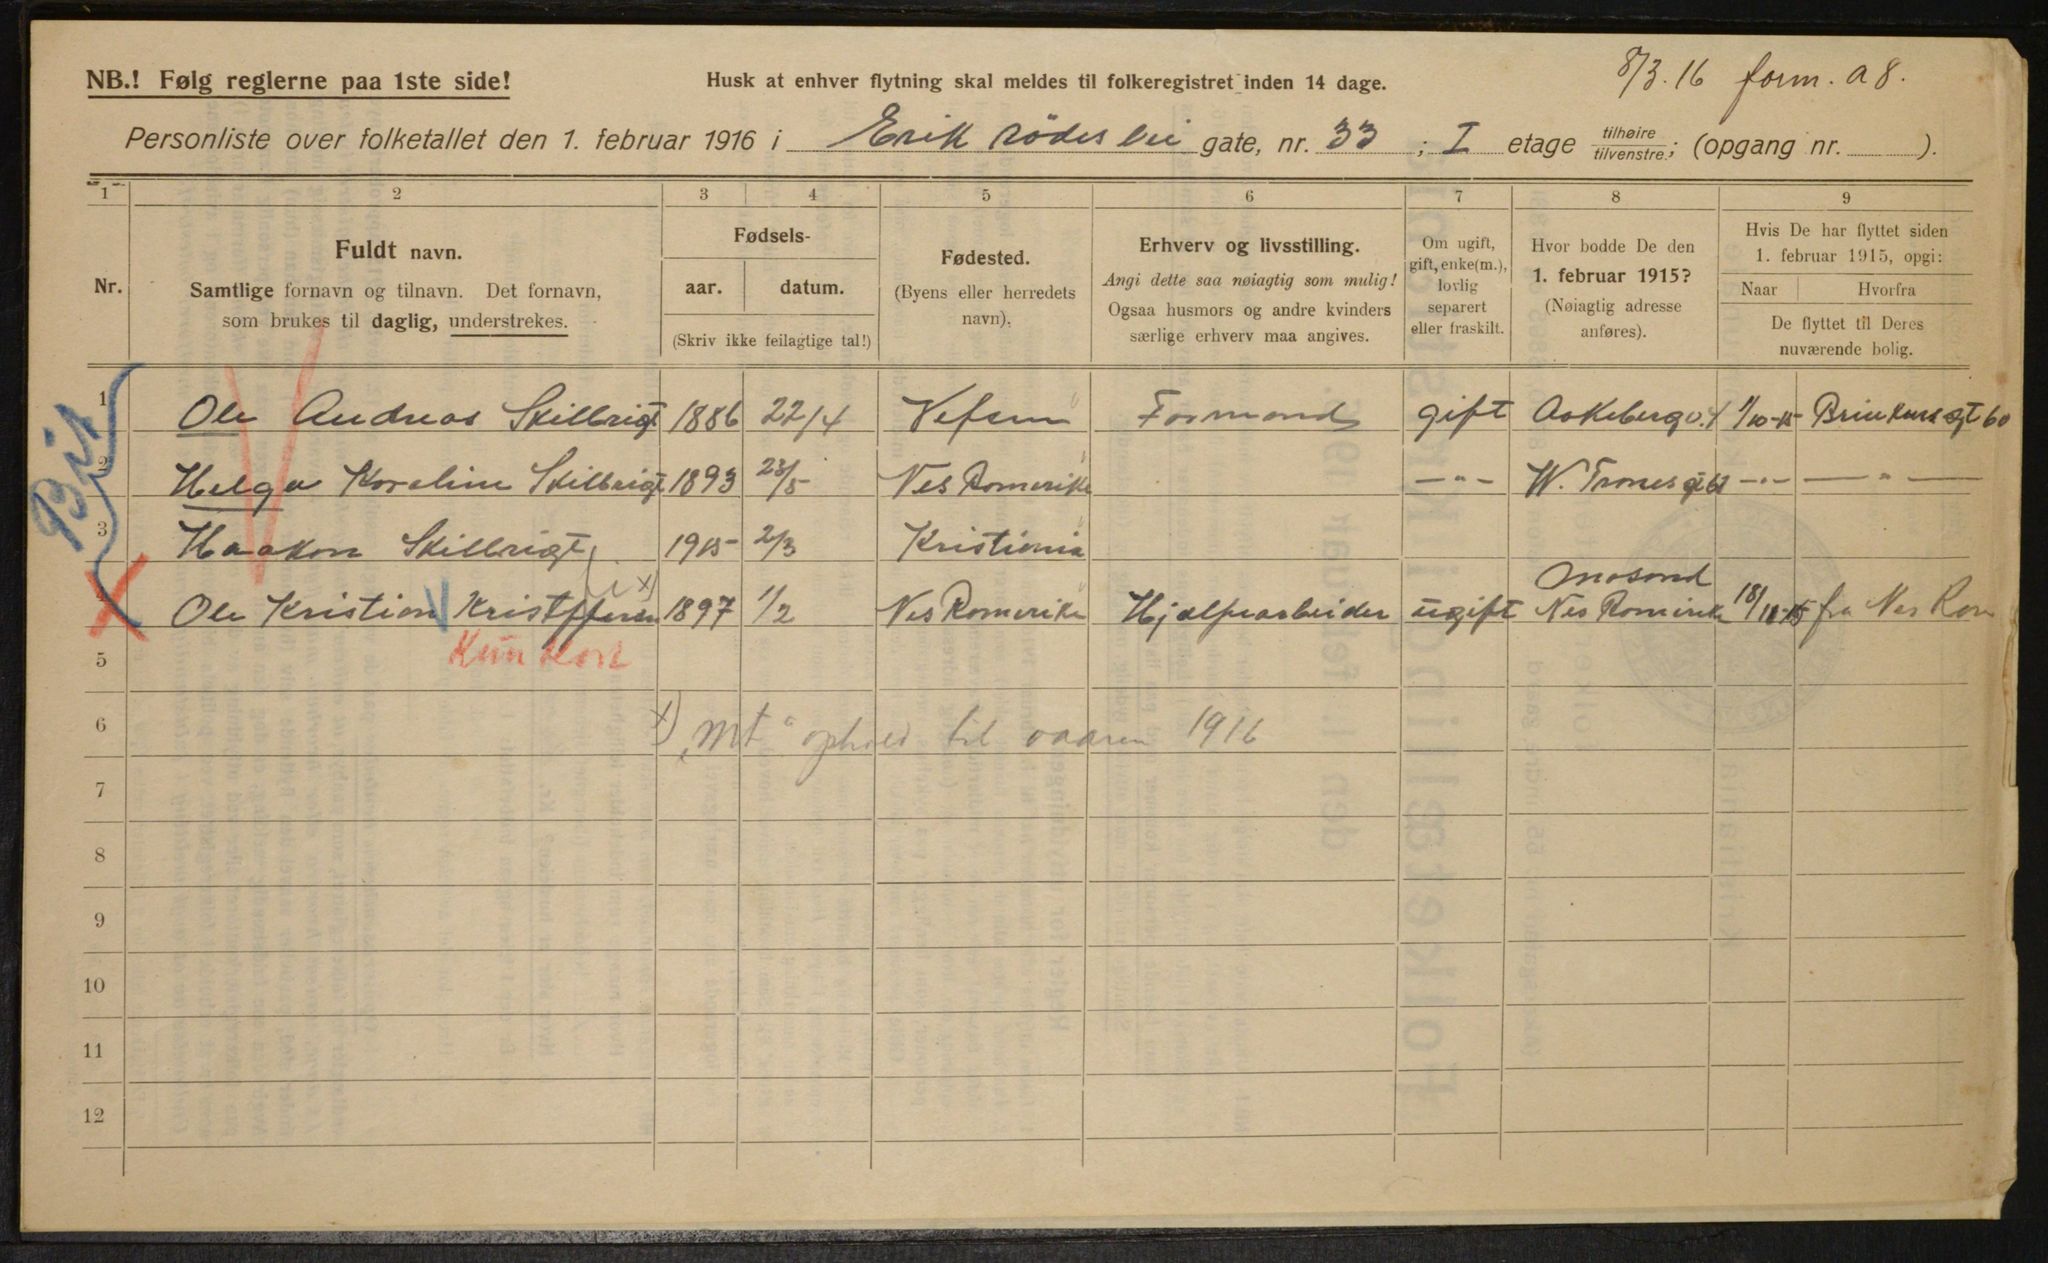 8/3.16 form. A 8.
NB.! Følg reglerne paa 1ste side!
Husk at enhver flytning skal meldes til folkeregistret inden 14 dage.
Personliste over folketallet den 1. februar 1916 i Erik Rödes vei gate, nr. 33; I etage tilhøire/tilvenstre; (opgang nr. ).
1 2 3 4 5 6 7 8 9
Nr.
Fuldt navn.
Samtlige fornavn og tilnavn. Det fornavn,
som brukes til daglig, understrekes.
Fødsels-
aar. datum.
(Skriv ikke feilagtige tal!)
Fødested.
(Byens eller herredets
navn).
Erhverv og livsstilling.
Angi dette saa nøiagtig som mulig!
Ogsaa husmors og andre kvinders
særlige erhverv maa angives.
Om ugift,
gift, enke(m.),
lovlig
separert
eller fraskilt.
Hvor bodde De den
1. februar 1915?
(Nøiagtig adresse
anføres).
Hvis De har flyttet siden
1. februar 1915, opgi:
Naar Hvorfra
De flyttet til Deres
nuværende bolig.
1 Ole Andreas Skilbrigt 1886 22/4 Vefsen Formand gift Aakeberg v. 1/10-15 gt 60
2 Helga Karoline Skilbrigt 1893 23/5 Nes Romerike -"- W. Tranes gt -"- -"-
3 Haakon Skilbrigt 1915 2/3 Kristiania
4 Ole Kristian Kristoffersen x) 1897 1/2 Nes Romerike Hjælpearbeider ugift Nes Romerike 18/11-15 fra Nes Rom
Kun kort
5
6 x) "Mt" ophold til vaaren 1916
7
8
9
10
11
12